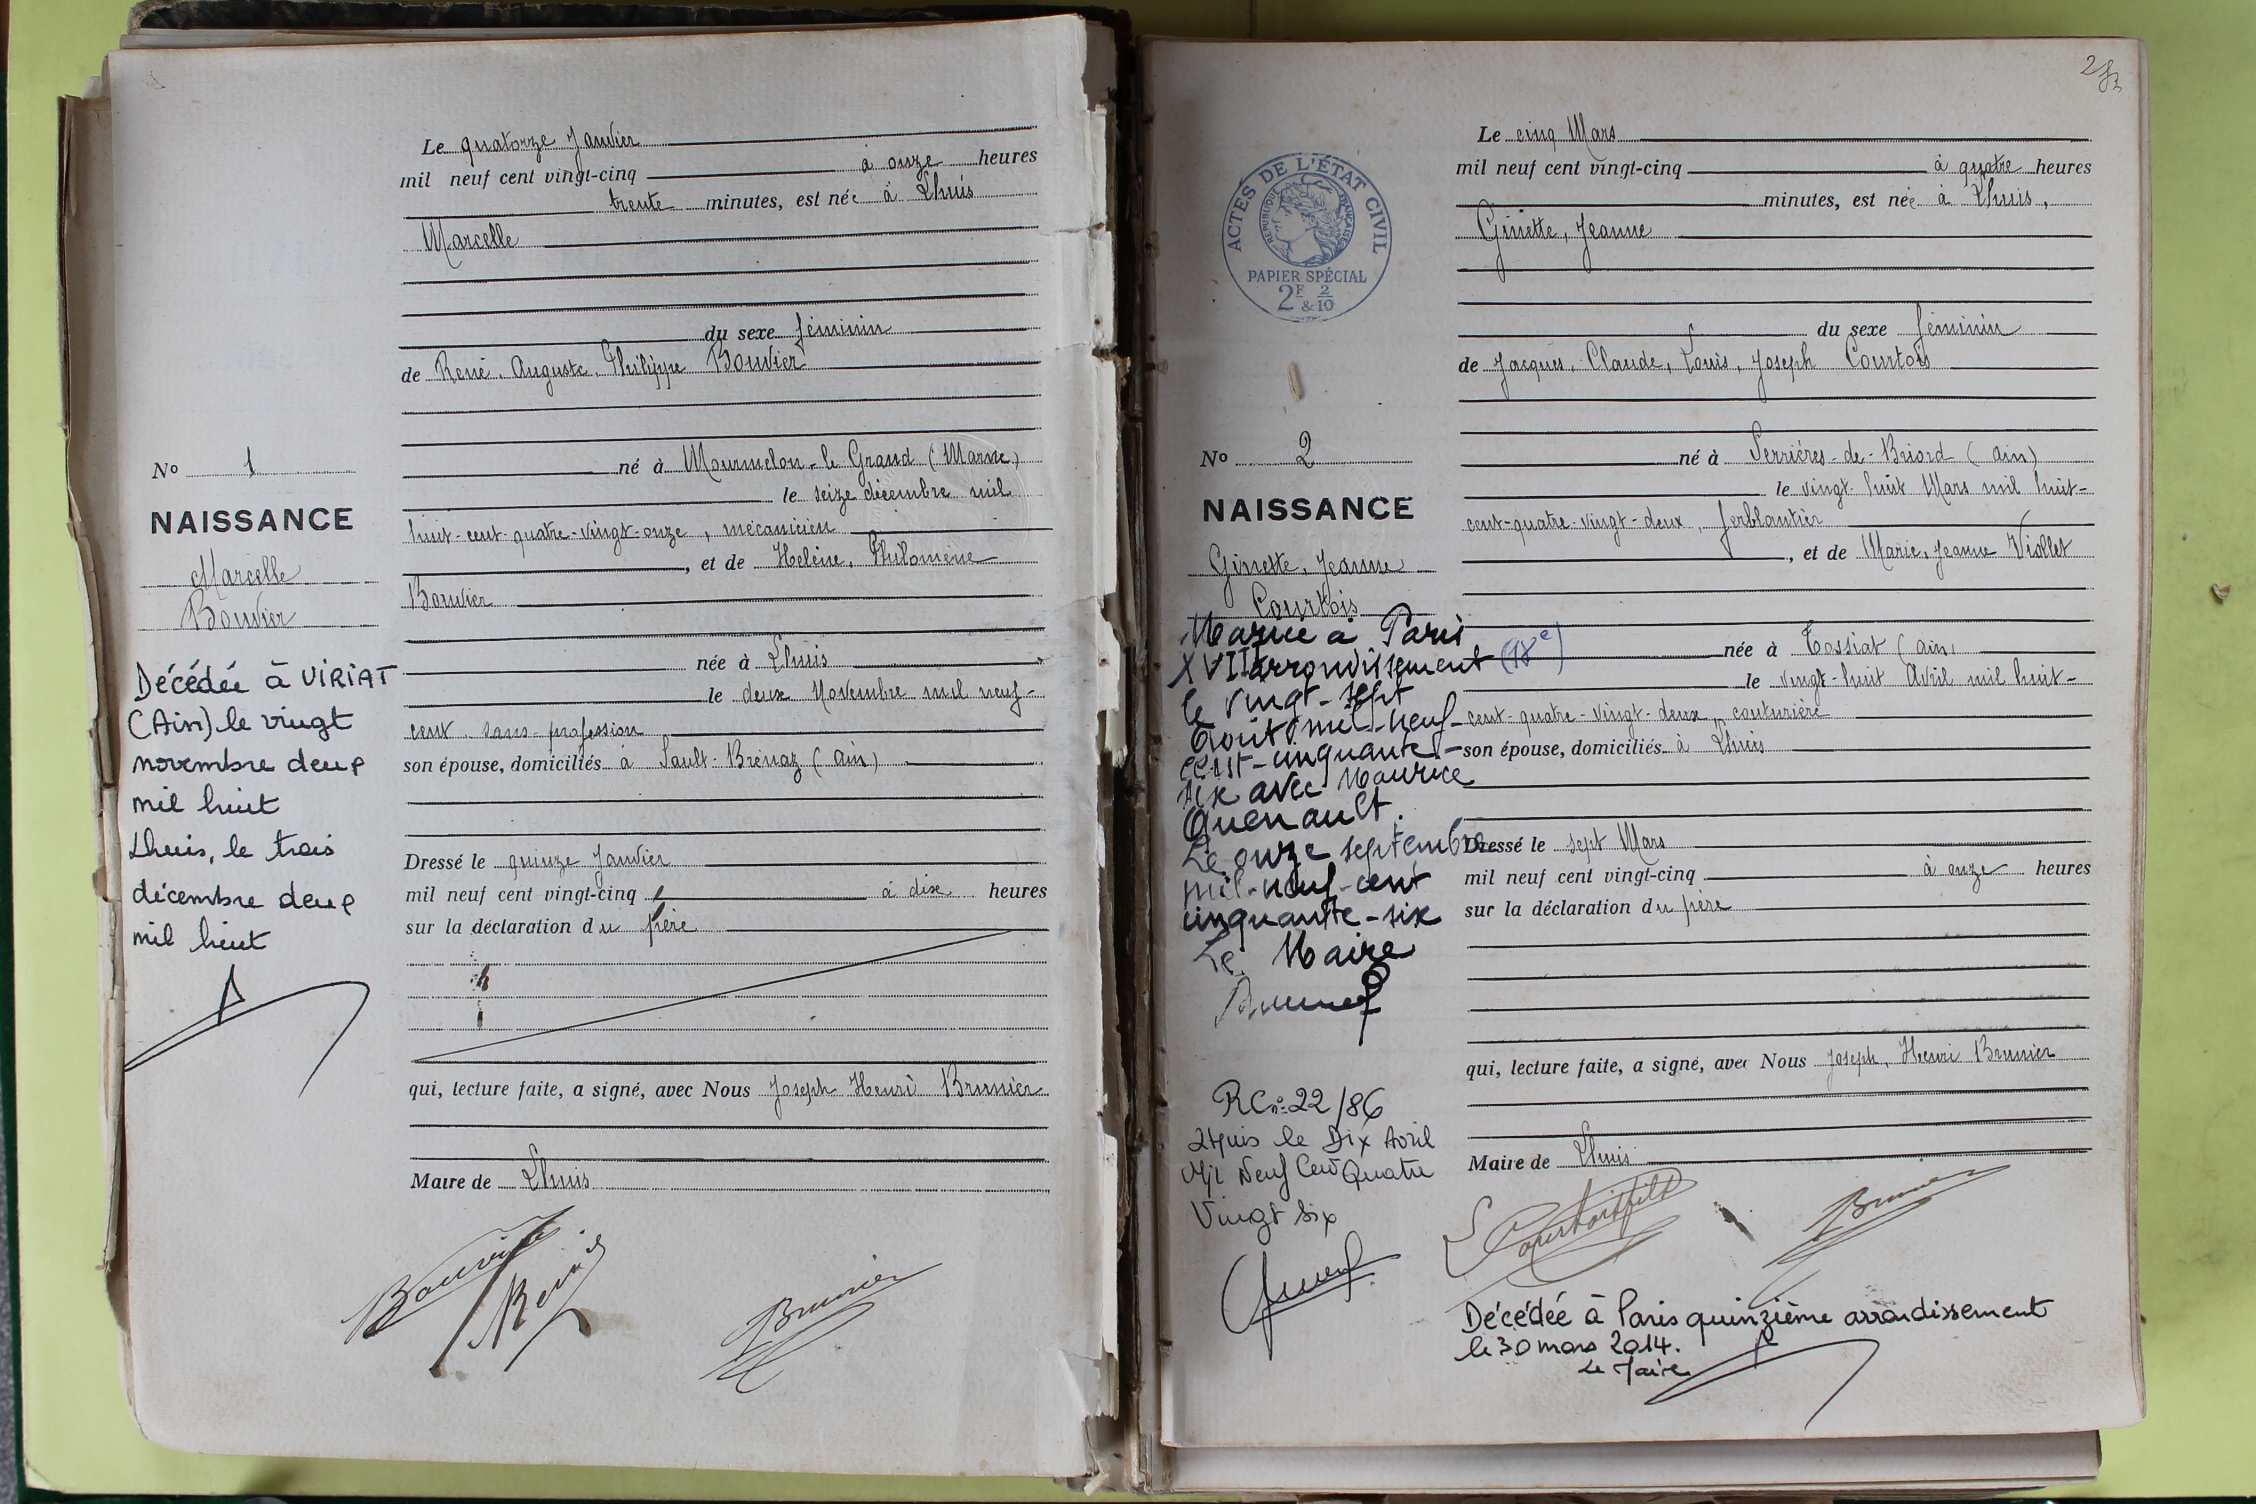 Le quatorze Janvier
mil neuf cent vingt-cinq à onze heures
trente minutes, est née à Lhuis
Marcelle
du sexe féminin
de René, Auguste, Philippe Bouvier
né à Mourmelon-le Grand (Marne)
le seize décembre mil
huit-cent-quatre-vingt-onze, mécanicien
, et de Helène, Philomène
Bouvier
née à Lhuis
le deux Novembre mil neuf-
cent sans profession
son épouse, domiciliés à Sault-Brénaz (Ain)
Dressé le quinze Janvier
mil neuf cent vingt-cinq à dix heures
sur la déclaration du père
qui, lecture faite, a signé, avec Nous Joseph Henri Brunier
Maire de Lhuis
Bouvier René
Brunier
No 1
NAISSANCE
Marcelle
Bouvier
Décédée à VIRIAT
(Ain) le vingt
novembre deux
mil huit
Lhuis, le trois
décembre deux
mil huit
2
Le cinq Mars
mil neuf cent vingt-cinq à quatre heures
minutes, est née à Lhuis,
Ginette, Jeanne
du sexe féminin
de Jacques, Claude, Louis, Joseph Courtois
né à Serrières-de-Briord (Ain)
le vingt-huit Mars mil huit-
cent-quatre-vingt-deux, ferblantier
, et de Marie, Jeanne Viallet
née à Tossiat (Ain)
le vingt-huit Avril mil huit-
cent-quatre-vingt-deux, couturière
son épouse, domiciliés à Lhuis
Dressé le sept Mars
mil neuf cent vingt-cinq à onze heures
sur la déclaration du père
qui, lecture faite, a signé, avec Nous Joseph, Henri Brunier
Maire de Lhuis
Courtois fils
Brunier
Décédée à Paris quinzième arrondissement
le 30 mars 2014.
Le Maire
ACTES DE L'ÉTAT CIVIL
RÉPUBLIQUE FRANÇAISE
PAPIER SPÉCIAL
2F & 2/10
No 2
NAISSANCE
Ginette, Jeanne
Courtois
Mariée à Paris
XVII arrondissement (18e)
le vingt-sept
Août mil-neuf-
cent-cinquante-
six avec Maurice
Quenault.
Le onze septembre
mil-neuf-cent
cinquante-six
Le Maire
RC n° 22/86
Lhuis le Dix Avril
Mil Neuf Cent Quatre
Vingt Six